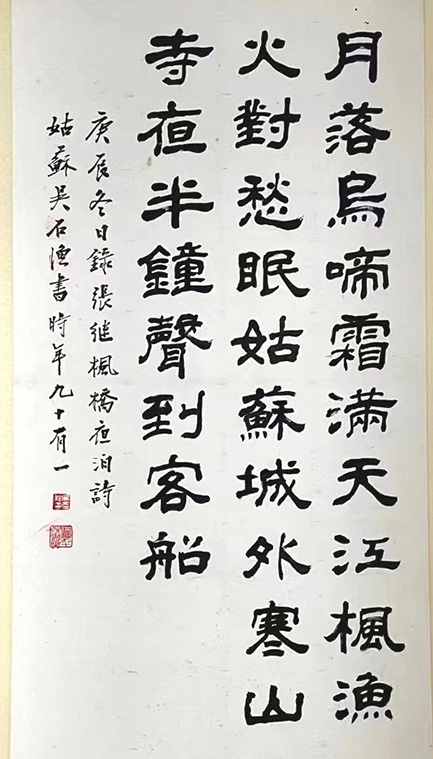 月落烏啼霜滿天江楓漁
火對愁眠姑蘇城外寒山
寺夜半鐘聲到客船
庚辰冬日錄張继楓橋夜泊詩
姑蘇吴石漁書時年九十有一